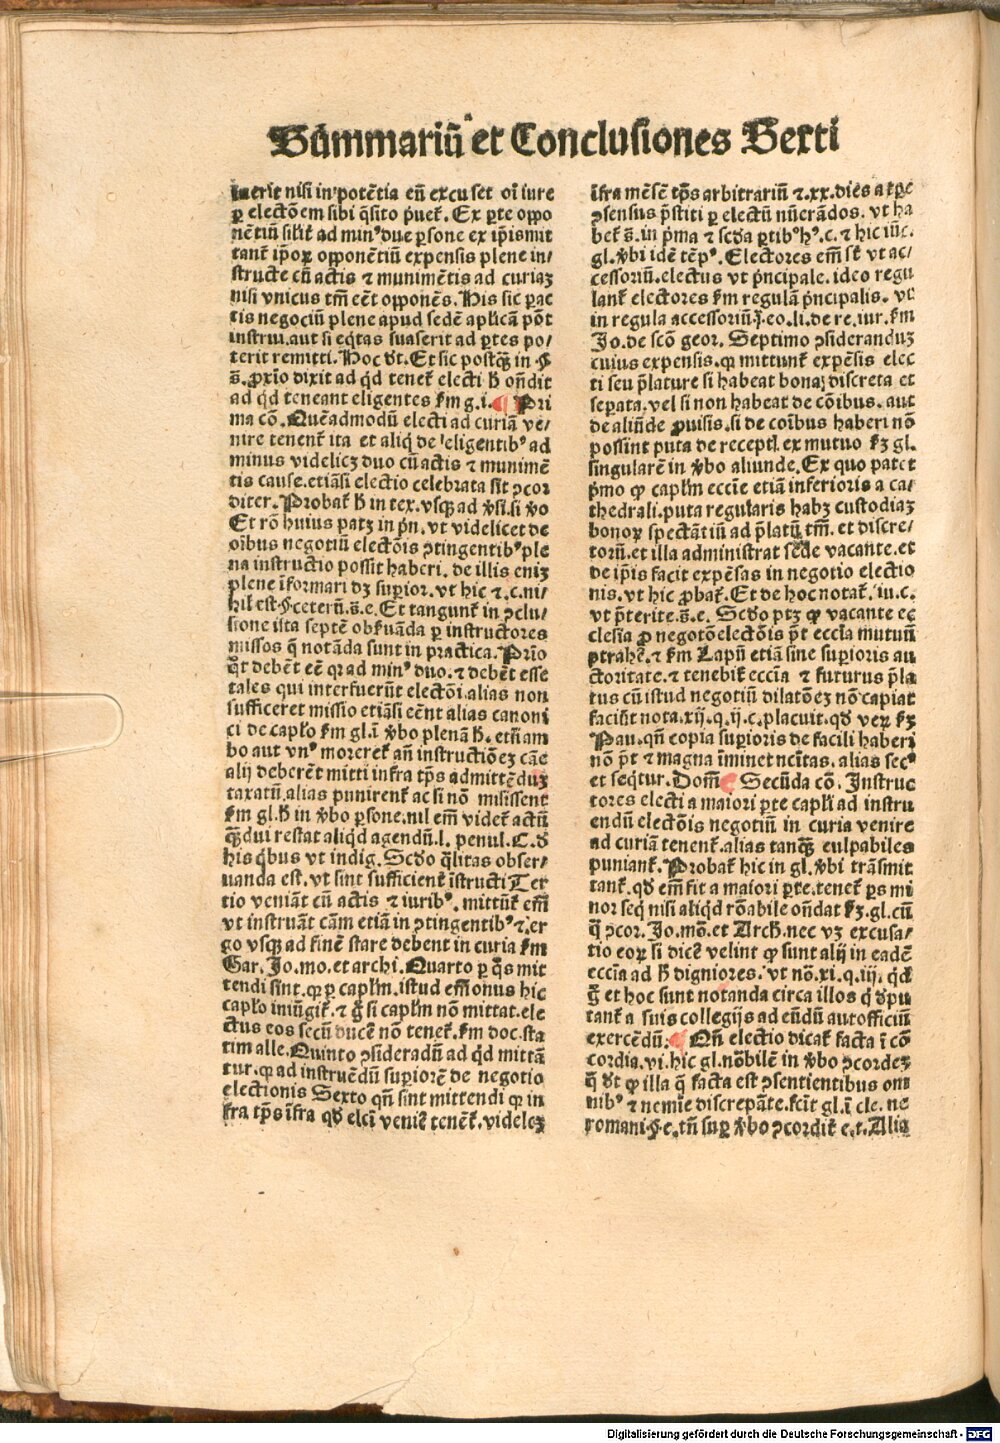 Summariū et Conclusiones Sexti
inerit nisi in potētia eū excuset oī iure
ꝑ electōem sibi q̄sito p̄uet᷑. Ex ꝑte oppo
nētiū silit᷑ ad minꝰ due ꝑsone ex ip̄is mit
tant᷑ ip̄oꝝ opponētiū expensis plene in/
structe cū actis ⁊ munimētis ad curiaꝫ
nisi vnicus tm̄ eēt opponēs. His sic ꝑac
tis negociū plene apud sedē aplicā pōt
instrui. aut si eq̄tas suaserit ad ꝑtes po/
terit remitti. Hoc dt. Et sic postqꝫ in §
s̄. ꝓxīo dixit ad qd tenet᷑ electi h̄ on̄dit
ad qd teneant eligentes fm g. i. ¶ Pri
ma cō. Quēadmodū electi ad curiā ve/
nire tenent᷑ ita et aliq̄ de eligentibꝰ ad
minus videlicꝫ duo cū actis ⁊ munimē
tis cause. etiāsi electio celebrata sit ↄcor
diter. Probat᷑ h̄ in tex. vsqꝫ ad v̄si. si v̄o
Et rō huius patꝫ in prin. vt videlicet de
oībus negotiū electōis ↄtingentibꝰ ple
na instructio possit haberi. de illis enīꝫ
plene īformari dꝫ suꝑior. vt hic ⁊ .c. ni/
hil est. § ceterū. s̄. e. Et tangunt᷑ in ↄclu/
sione ista septē obseruāda ꝑ instructores
missos q̄ notāda sunt in practica. Prīo
q̄t debēt eē qꝛ ad minꝰ duo. ⁊ debēt esse
tales qui interfuerūt electōi. alias non
sufficeret missio etiāsi eēnt alias canoni
ci de caplo fm gl. ī v̄bo plenā h̄. etn̄ am
bo aut vnꝰ moreret᷑ an̄ instructiōeꝫ cāe
alij deberēt mitti infra tp̄s admittēduꝫ
taxatū. alias punirent᷑ ac si nō misissent
fm gl. h̄ in v̄bo ꝑsone. nil em̄ videt᷑ actū
q̄ꝫdui restat aliqd agendū. l. penul. C. d̄
his qbus vt indig. Scdo q̄litas obser/
uanda est. vt sint sufficient᷑ īstructi Ter
tio veniāt cū actis ⁊ iuribꝰ. mittūt᷑ em̄
vt instruāt cām etiā in ↄtingentibꝰ ⁊. er
go vsqꝫ ad finē stare debent in curia fm
Gar. Jo. mo. et archi. Quarto ꝑ q̄s mit
tendi sint. qꝛ ꝑ caplm̄. istud em̄ onus hic
caplo iniūgit᷑. ⁊ q̄ si caplm̄ nō mittat. ele
ctus eos secū ducē nō tenet᷑. fm doc. sta
tim alle. Quinto ↄsideradū ad qd mittā
tur. qꝛ ad instruēdū suꝑiorē de negotio
electionis Sexto qn̄ sint mittendi qꝛ in
fra tp̄s īfra qd elcī veniē tenent᷑. videlcꝫ
īfra mēsē tp̄s arbitrariū ⁊ .xx. dies a tp̄e
ↄsensus p̄stiti ꝑ electū nūerādos. vt ha
bet᷑ s̄. in p̄ma ⁊ scda ꝑtibꝰ hꝰ. c. ⁊ hic iūc.
gl. v̄bi idē tēpꝰ. Electores em̄ st᷑ vt ac/
cessoriū. electus vt p̄ncipale. ideo regu
lant᷑ electores fm regulā p̄ncipalis. vt
in regula accessoriū. j. eo. li. de re. iur. fm
Jo. de scō geor. Septimo ↄsideranduꝫ
cuius expensis. qꝛ mittunt᷑ expēsis elec
ti seu p̄lature si habeat bonaꝫ discreta et
seꝑata. vel si non habeat de cōibus. aut
de aliūde ꝓuisis. si de coībus haberi nō
possint puta de recept. ex mutuo fꝫ gl.
singularē in v̄bo aliunde. Ex quo patet
p̄mo qꝛ caplm̄ eccīe etiā inferioris a ca/
thedrali. puta regularis habꝫ custodiaꝫ
bonoꝝ spectātiū ad p̄latū tm̄. et discre/
torū. et illa administrat sede vacante. et
de ip̄is facit expēsas in negotio electio
nis. vt hic ꝓbat᷑. Et de hoc notat᷑. iu. c.
vt p̄terite. s̄. e. Scdo ptꝫ qꝛ vacante ec
clesia ꝓ negotō electōis p̄t eccīa mutuū
ↄtrahē. ⁊ fm Lapū etiā sine suꝑioris au
ctoritate. ⁊ tenebit᷑ eccīa ⁊ futurus p̄la
tus cū istud negotiū dilatōeꝫ nō capiat
facīut nota. xij. q. ij. c. placuit. qd veꝝ fꝫ
Pau. qn̄ copia suꝑioris de facili haberi
nō p̄t ⁊ magna īminet nc̄itas. alias secꝰ
et seq̄tur. Dom̄ ¶ Secūda cō. Instruc
tores electi a maiori ꝑte capli ad instru
endū electōis negotiū in curia venire
ad curiā tenent᷑. alias tanqꝫ culpabiles
puniant᷑. Probat᷑ hic in gl. v̄bi trāsmit
tant᷑. qd em̄ fit a maiori ꝑte. tenet᷑ ꝑs mi
nor seq̄ nisi aliqd rōabile on̄dat fꝫ. gl. cū
q̄ ↄcor. Jo. mō. et Arch. nec vꝫ excusa/
tio eoꝝ si dicē velint qꝛ sunt alij in eadē
eccīa ad h̄ digniores. vt nō. xi. q. iij. qd
q̄ et hoc sunt notanda circa illos q̄ dp̄u
tant᷑ a suis collegijs ad eūdū aut officiū
exercēdū: ¶ Qn̄ electio dicat᷑ facta ī cō
cordia. vi. hic gl. nōbilē in v̄bo ↄcordeꝫ
q̄ dt qꝛ illa q̄ facta est ↄsentientibus om
nibꝰ ⁊ nemīe discrepāte. fcīt gl. ī cle. ne
romani. § e. tn̄ suꝑ v̄bo ↄcordit᷑ e. t. Aliq
Digitalisierung gefördert durch die Deutsche Forschungsgemeinschaft - DFG